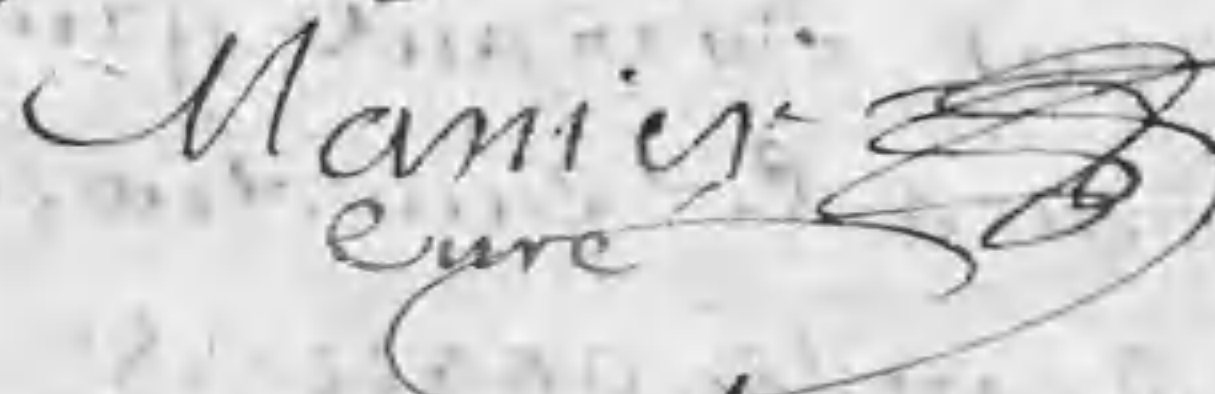 Manier
Curé